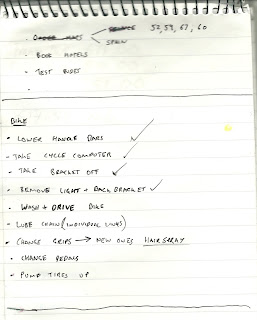 - ORDER MAPS → FRANCE 52, 59, 67, 60
SPAIN
- BOOK HOTELS
- TEST RIDES
-
BIKE
- LOWER HANDLE BARS ✓
- TAKE CYCLE COMPUTER ✓
- TAKE BRACKET OFF ✓
- REMOVE LIGHT + BACK BRACKET ✓
- WASH + DRIVE BIKE
- LUBE CHAIN (INDIVIDUAL LINKS)
- CHANGE GRIPS → NEW ONES HAIRSPRAY
- CHANGE PEDALS
- PUMP TIRES UP